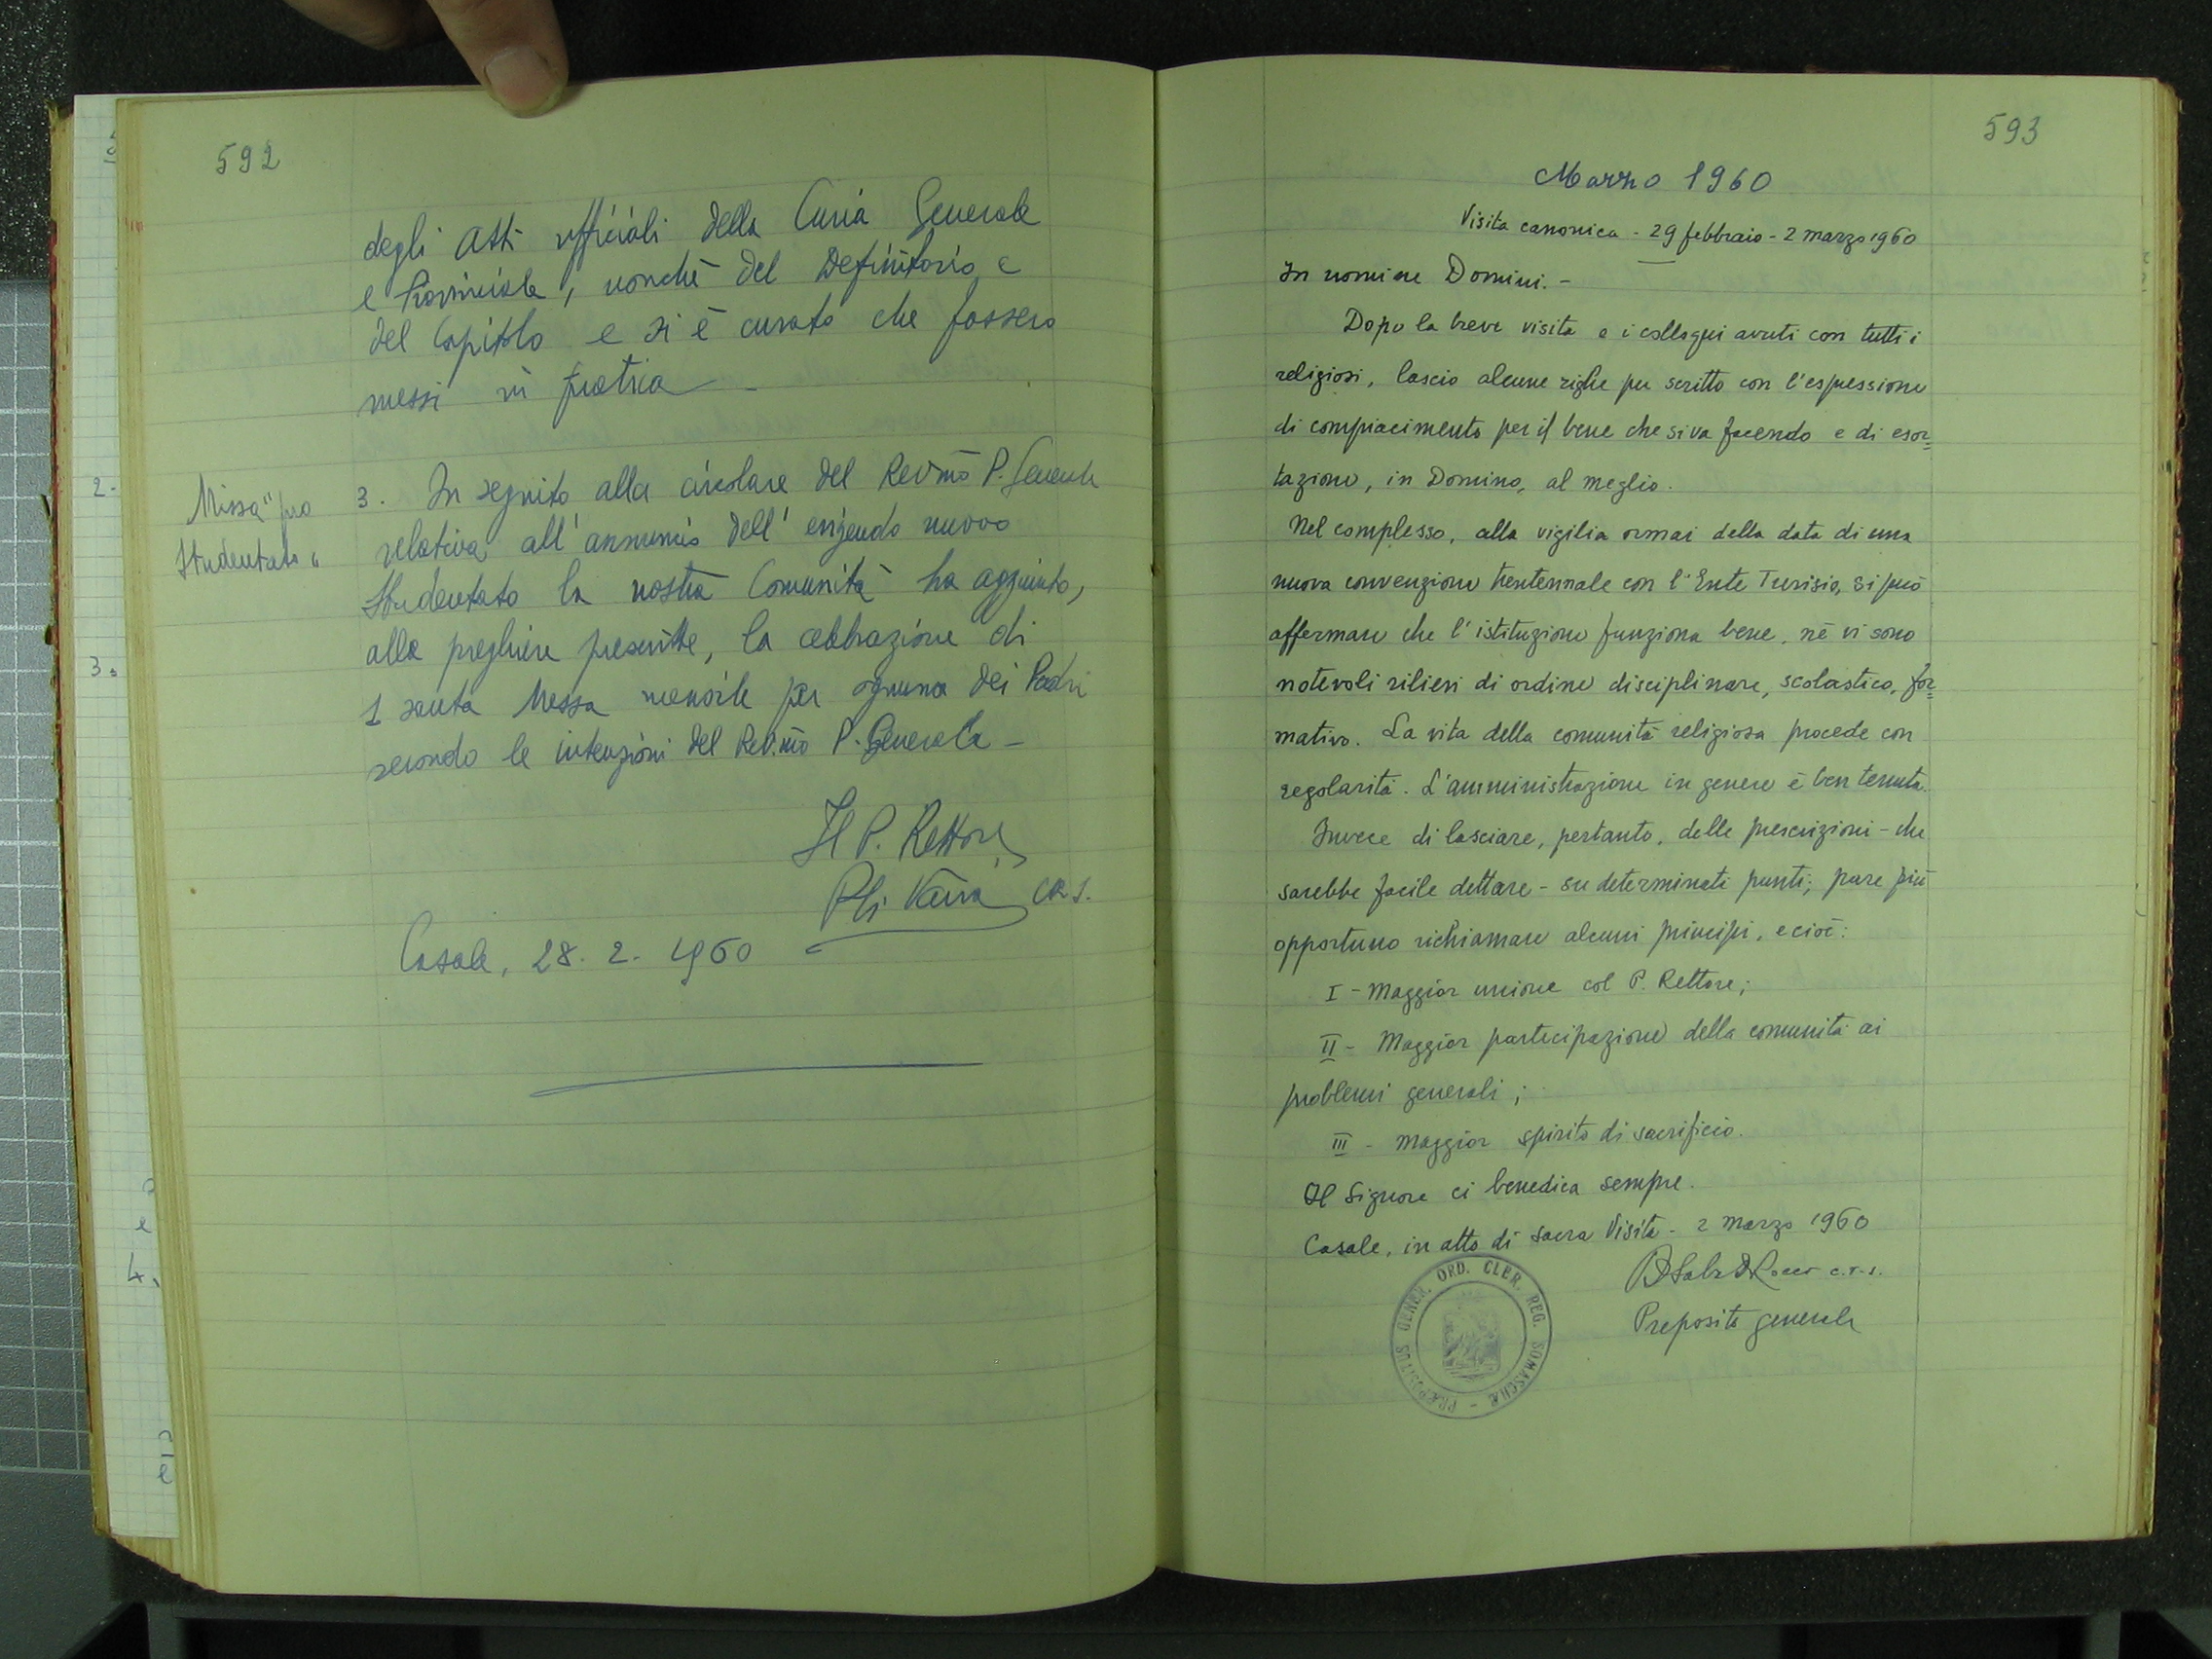 592
degli Atti ufficiali della Curia Generale
e Provinciale, nonchè del Definitorio e
del Capitolo e si è curato che fossero
messi in pratica -
Missa "pro
Studentato"
3. In seguito alla circolare del Rev.mo P. Generale
relativa all'annuncio dell'erigendo nuovo
Studentato la nostra Comunità ha aggiunto,
alle preghiere prescritte, la celebrazione di
1 santa Messa mensile per ognuno dei Padri
secondo le intenzioni del Rev.mo P. Generale -
Il P. Rettore
CRS.
Casale, 28. 2. 1960
2.
3.
e
4.
593
Marzo 1960
Visita canonica - 29 febbraio - 2 marzo 1960
In nomine Domini. -
Dopo la breve visita e i colloqui avuti con tutti i
religiosi, lascio alcune righe per scritto con l'espressione
di compiacimento per il bene che si va facendo e di esor=
tazione, in Domino, al meglio.
Nel complesso, alla vigilia ormai della data di una
nuova convenzione trentennale con l'Ente Trevisio, si può
affermare che l'istituzione funziona bene, nè vi sono
notevoli rilievi di ordine disciplinare, scolastico, for=
mativo. La vita della comunità religiosa procede con
regolarità. L'amministrazione in genere è ben tenuta.
Invece di lasciare, pertanto, delle prescrizioni - che
sarebbe facile dettare - su determinati punti, pare più
opportuno richiamare alcuni principi, e cioè:
I - Maggior unione col P. Rettore;
II - Maggior partecipazione della comunità ai
problemi generali;
III - Maggior spirito di sacrificio.
Il Signore ci benedica sempre.
Casale, in atto di sacra Visita - 2 marzo 1960
c.r.s.
Preposito generale
PRÆPOSITUS GENER. ORD. CLER. REG. SOMASCHÆ -